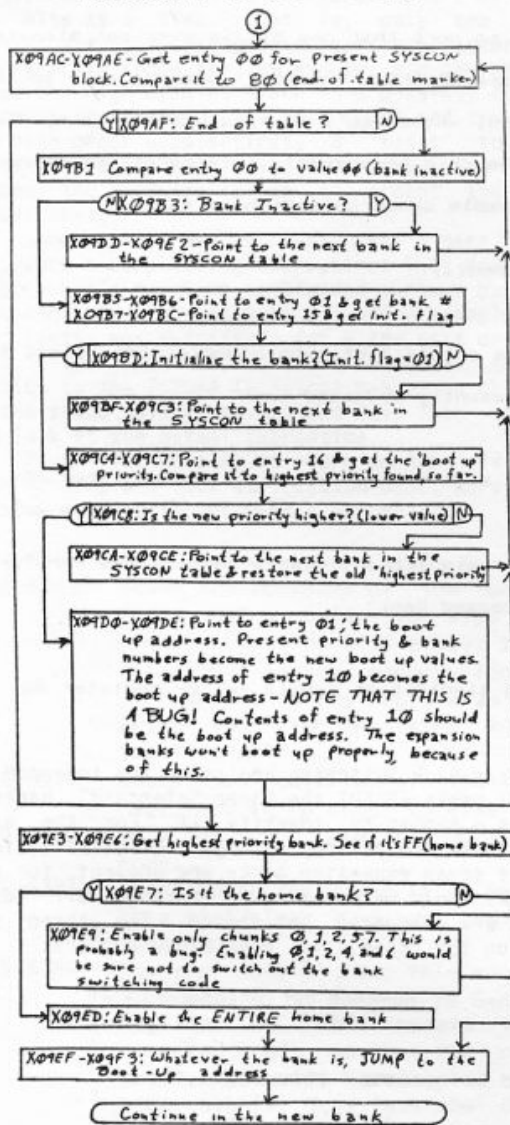 1
X09AC-X09AE-Get entry 00 for present SYSCON
block. Compare it to 80 (end-of-table marker)
Y X09AF: End of table? N
X09B1 Compare entry 00 to value 00 (bank inactive)
N X09B3: Bank Inactive? Y
X09DD-X09E2-Point to the next bank in
the SYSCON table
X09B5-X09B6-Point to entry 01 & get bank #
X09B7-X09BC-Point to entry 15 & get init. flag
Y X09BD: Initialize the bank? (Init. flag=01) N
X09BF-X09C3: Point to the next bank in
the SYSCON table
X09C4-X09C7: Point to entry 16 & get the "boot up"
priority. Compare it to highest priority found, so far.
Y X09C8: Is the new priority higher? (lower value) N
X09CA-X09CE: Point to the next bank in the
SYSCON table & restore the old "highest priority"
X09D0-X09DE: Point to entry 01, the boot
up address. Present priority & bank
numbers become the new boot up values.
The address of entry 10 becomes the
boot up address - NOTE THAT THIS IS
A BUG! Contents of entry 10 should
be the boot up address. The expansion
banks won't boot up properly, because
of this.
X09E3-X09E6: Get highest priority bank. See if it's FF (home bank)
Y X09E7: Is it the home bank? N
X09E9: Enable only chunks 0,1,2,5,7. This is
probably a bug. Enabling 0,1,2,4, and 6 would
be sure not to switch out the bank
switching code
X09ED: Enable the ENTIRE home bank
X09EF-X09F3: Whatever the bank is, JUMP to the
Boot-Up address
Continue in the new bank